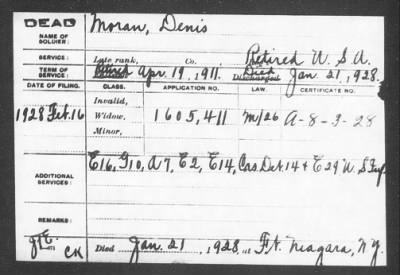 DEAD
NAME OF SOLDIER:
Moran, Denis
SERVICE:
Late rank,
Co.
Retired U. S. A.
TERM OF SERVICE:
Apr. 19, 1911.
Died Jan. 21, 1928.
DATE OF FILING.
CLASS.
APPLICATION NO.
LAW.
CERTIFICATE NO.
Invalid,
1928 Feb. 16
Widow,
1605,411
A-8-3-28
Minor,
ADDITIONAL SERVICES:
E16, G10, A7, E2, E14, Cas Det 14 & E29 U. S. Inf.
REMARKS:
CK
Died Jan. 21, 1928, at Ft. Niagara, N.Y.